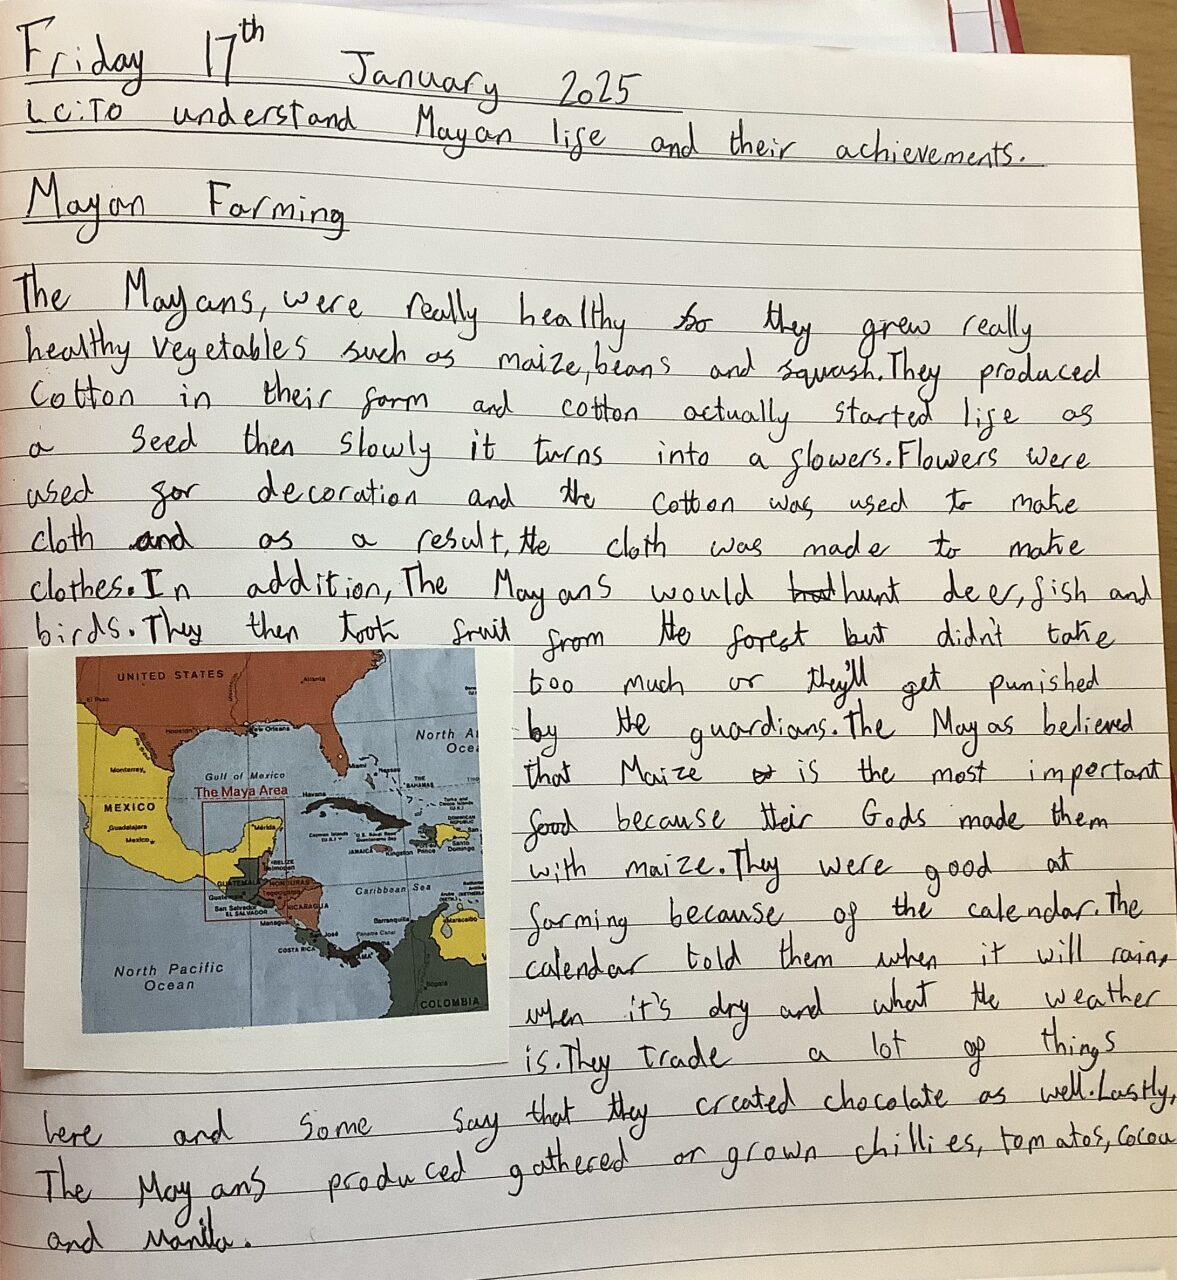 Friday 17th January 2025
LC:To understand Mayan life and their achievements.
Mayan Farming
The Mayans, were really healthy so they grew really
healthy vegetables such as maize, beans and squash. They produced
cotton in their farm and cotton actually started life as
a seed then slowly it turns into a flowers. Flowers were
used for decoration and the cotton was used to make
cloth and as a result, the cloth was made to make
clothes. In addition, The Mayans would hunt deer, fish and
birds. They then took fruit from the forest but didn't take
too much or they'll get punished
by the guardians. The Mayas believed
that Maize is the most important
food because their Gods made them
with maize. They were good at
farming because of the calendar. The
calendar told them when it will rain,
when it's dry and what the weather
is. They trade a lot of things
here and some say that they created chocolate as well. Lastly,
The Mayans produced gathered or grown chillies, tomatos, cocoa
and Manila.
UNITED STATES
Atlanta
El Paso
Houston
New Orleans
Monterrey
Gulf of Mexico
The Maya Area
MEXICO
Guadalajara
Mexico
Mérida
Miami
Nassau
THE BAHAMAS
Havana
North At
Ocea
Cayman Islands
JAMAICA
Kingston
Port-au-Prince
DOMINICAN REPUBLIC
Santo Domingo
BELIZE
Belmopan
GUATEMALA
HONDURAS
Tegucigalpa
San Salvador
EL SALVADOR
NICARAGUA
Managua
San José
COSTA RICA
Panama Canal
Caribbean Sea
Barranquilla
Maracaibo
Bogotá
COLOMBIA
North Pacific
Ocean